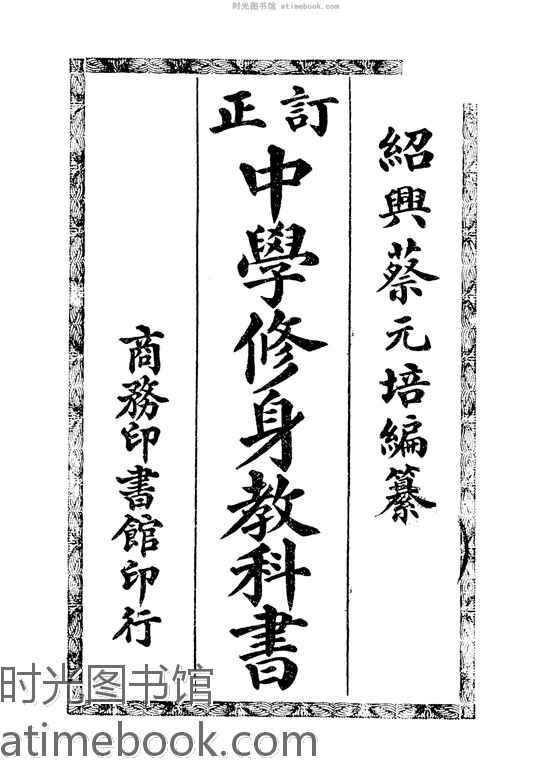 时光图书馆 atimebook.com
紹興蔡元培編纂
訂正
中學修身教科書
商務印書館印行
时光图书馆
atimebook.com